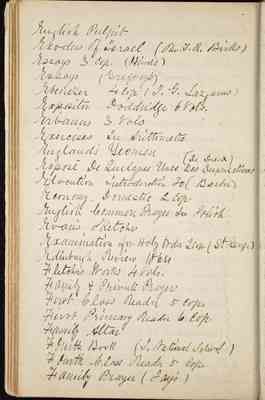 English Pulpit
Exodus Of Israel (By T. R. Birks)
Essays 3 Cop. (Hinds)
Essays (Gregory)
Ebenezer 4 cop (J. G. Lazarus)
Expositor Doddridge 6 Vols.
Erbanus 3 Vols
Exercises In Arithmetic
England's Yeomen
Exposé De Quelques Unes Des
Elocution introduction To (Barber)
Economy Domestic 2 cop
English Common Prayer In
Evans Sketches
Examination for Holy Orders
Edinburgh Review
Fletchers Works 4 Vols.
Family & Private Prayer
First Class Reader 5 cop
First Primary Reader 6 Cop
Family Altar
Fourth Book (I. National School)
Fourth Class Reader 5 cop
Family Prayer